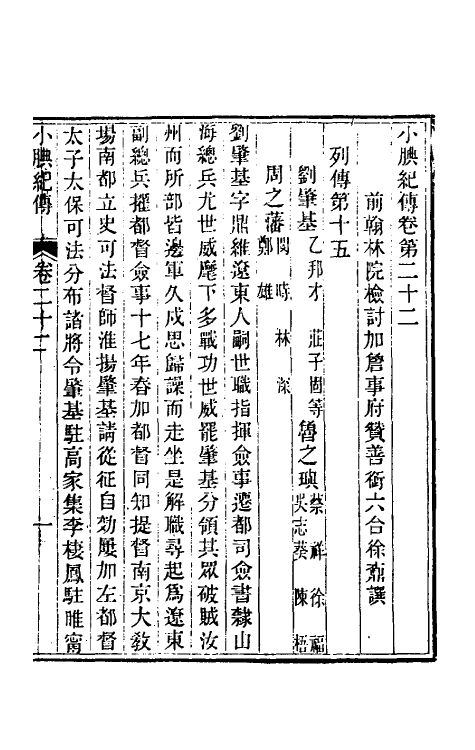 小腆紀傳卷第二十二
前翰林院檢討加詹事府贊善銜六合徐鼒譔
列傳第十五
劉肇基 乙邦才 莊子固等 魯之璵 蔡祥 徐福 吳志葵 陳梧
周之藩 閔時 林深 鄭雄
劉肇基字鼎維遼東人嗣世職指揮僉事遷都司僉書隸山
海總兵尤世威麾下多戰功世威罷肇基分領其眾破賊汝
州而所部皆邊軍久戍思歸譟而走坐是解職尋起爲遼東
副總兵擢都督僉事十七年春加都督同知提督南京大教
場南都立史可法督師淮揚肇基請從征自効屢加左都督
太子太保可法分布諸將令肇基駐高家集李棲鳳駐睢寧
小腆紀傳 卷二十二 一